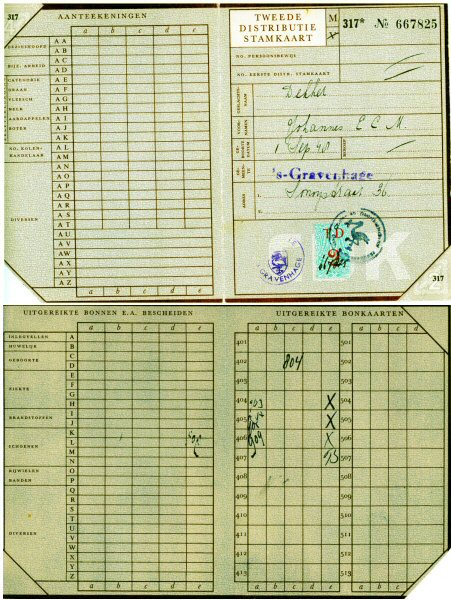 317
AANTEEKENINGEN
a b c d e
GEZINSHOOFD
BIJZ. ARBEID
CATEGORIE
GRAAN
VLEESCH
MELK
AARDAPPELEN
BOTER
NO. KOLEN-
HANDELAAR
DIVERSEN
AA
AB
AC
AD
AE
AF
AG
AH
AI
AJ
AK
AL
AM
AN
AO
AP
AQ
AR
AS
AT
AU
AV
AW
AX
AY
AZ
a b c d e
TWEEDE
DISTRIBUTIE
STAMKAART
M
X
317* № 667825
NO. PERSOONSBEWIJS
NO. EERSTE DISTR. STAMKAART
Dekker
VOOR-
NAMEN
Johannes C C M.
1 Sep. 40
's-Gravenhage
ADRES
1.
36
2.
GRAVENHAGE
TD
317
UITGEREIKTE BONNEN E.A. BESCHEIDEN
a b c d e
INLEGVELLEN
HUWELIJK
GEBOORTE
ZIEKTE
BRANDSTOFFEN
SCHOENEN
RIJWIELEN
BANDEN
DIVERSEN
A
B
C
D
E
F
G
H
I
J
K
L
M
N
O
P
Q
R
S
T
U
V
W
X
Y
Z
a b c d e
UITGEREIKTE BONKAARTEN
a b c d e a b c d
401 501
402 804 502
403 503
404 X 504
405 X 505
406 X 506
407 507
408 508
409 509
410 510
411 511
412 512
413 513
a b c d e a b c d